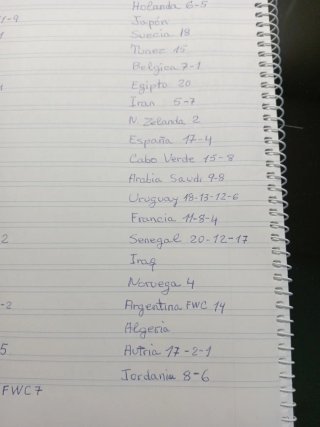 Holanda 6-5
1-9 Japón
1 Suecia 18
Tunez 15
Belgica 7-1
1 Egipto 20
Iran 5-7
N. Zelanda 2
España 17-4
Cabo Verde 15-8
Arabia Saudi 9-8
Uruguay 18-13-12-6
Francia 11-8-4
2 Senegal 20-12-17
Iraq
Noruega 4
-2 Argentina FWC 14
Algeria
5 Autria 17-2-1
Jordania 8-6
FWC7